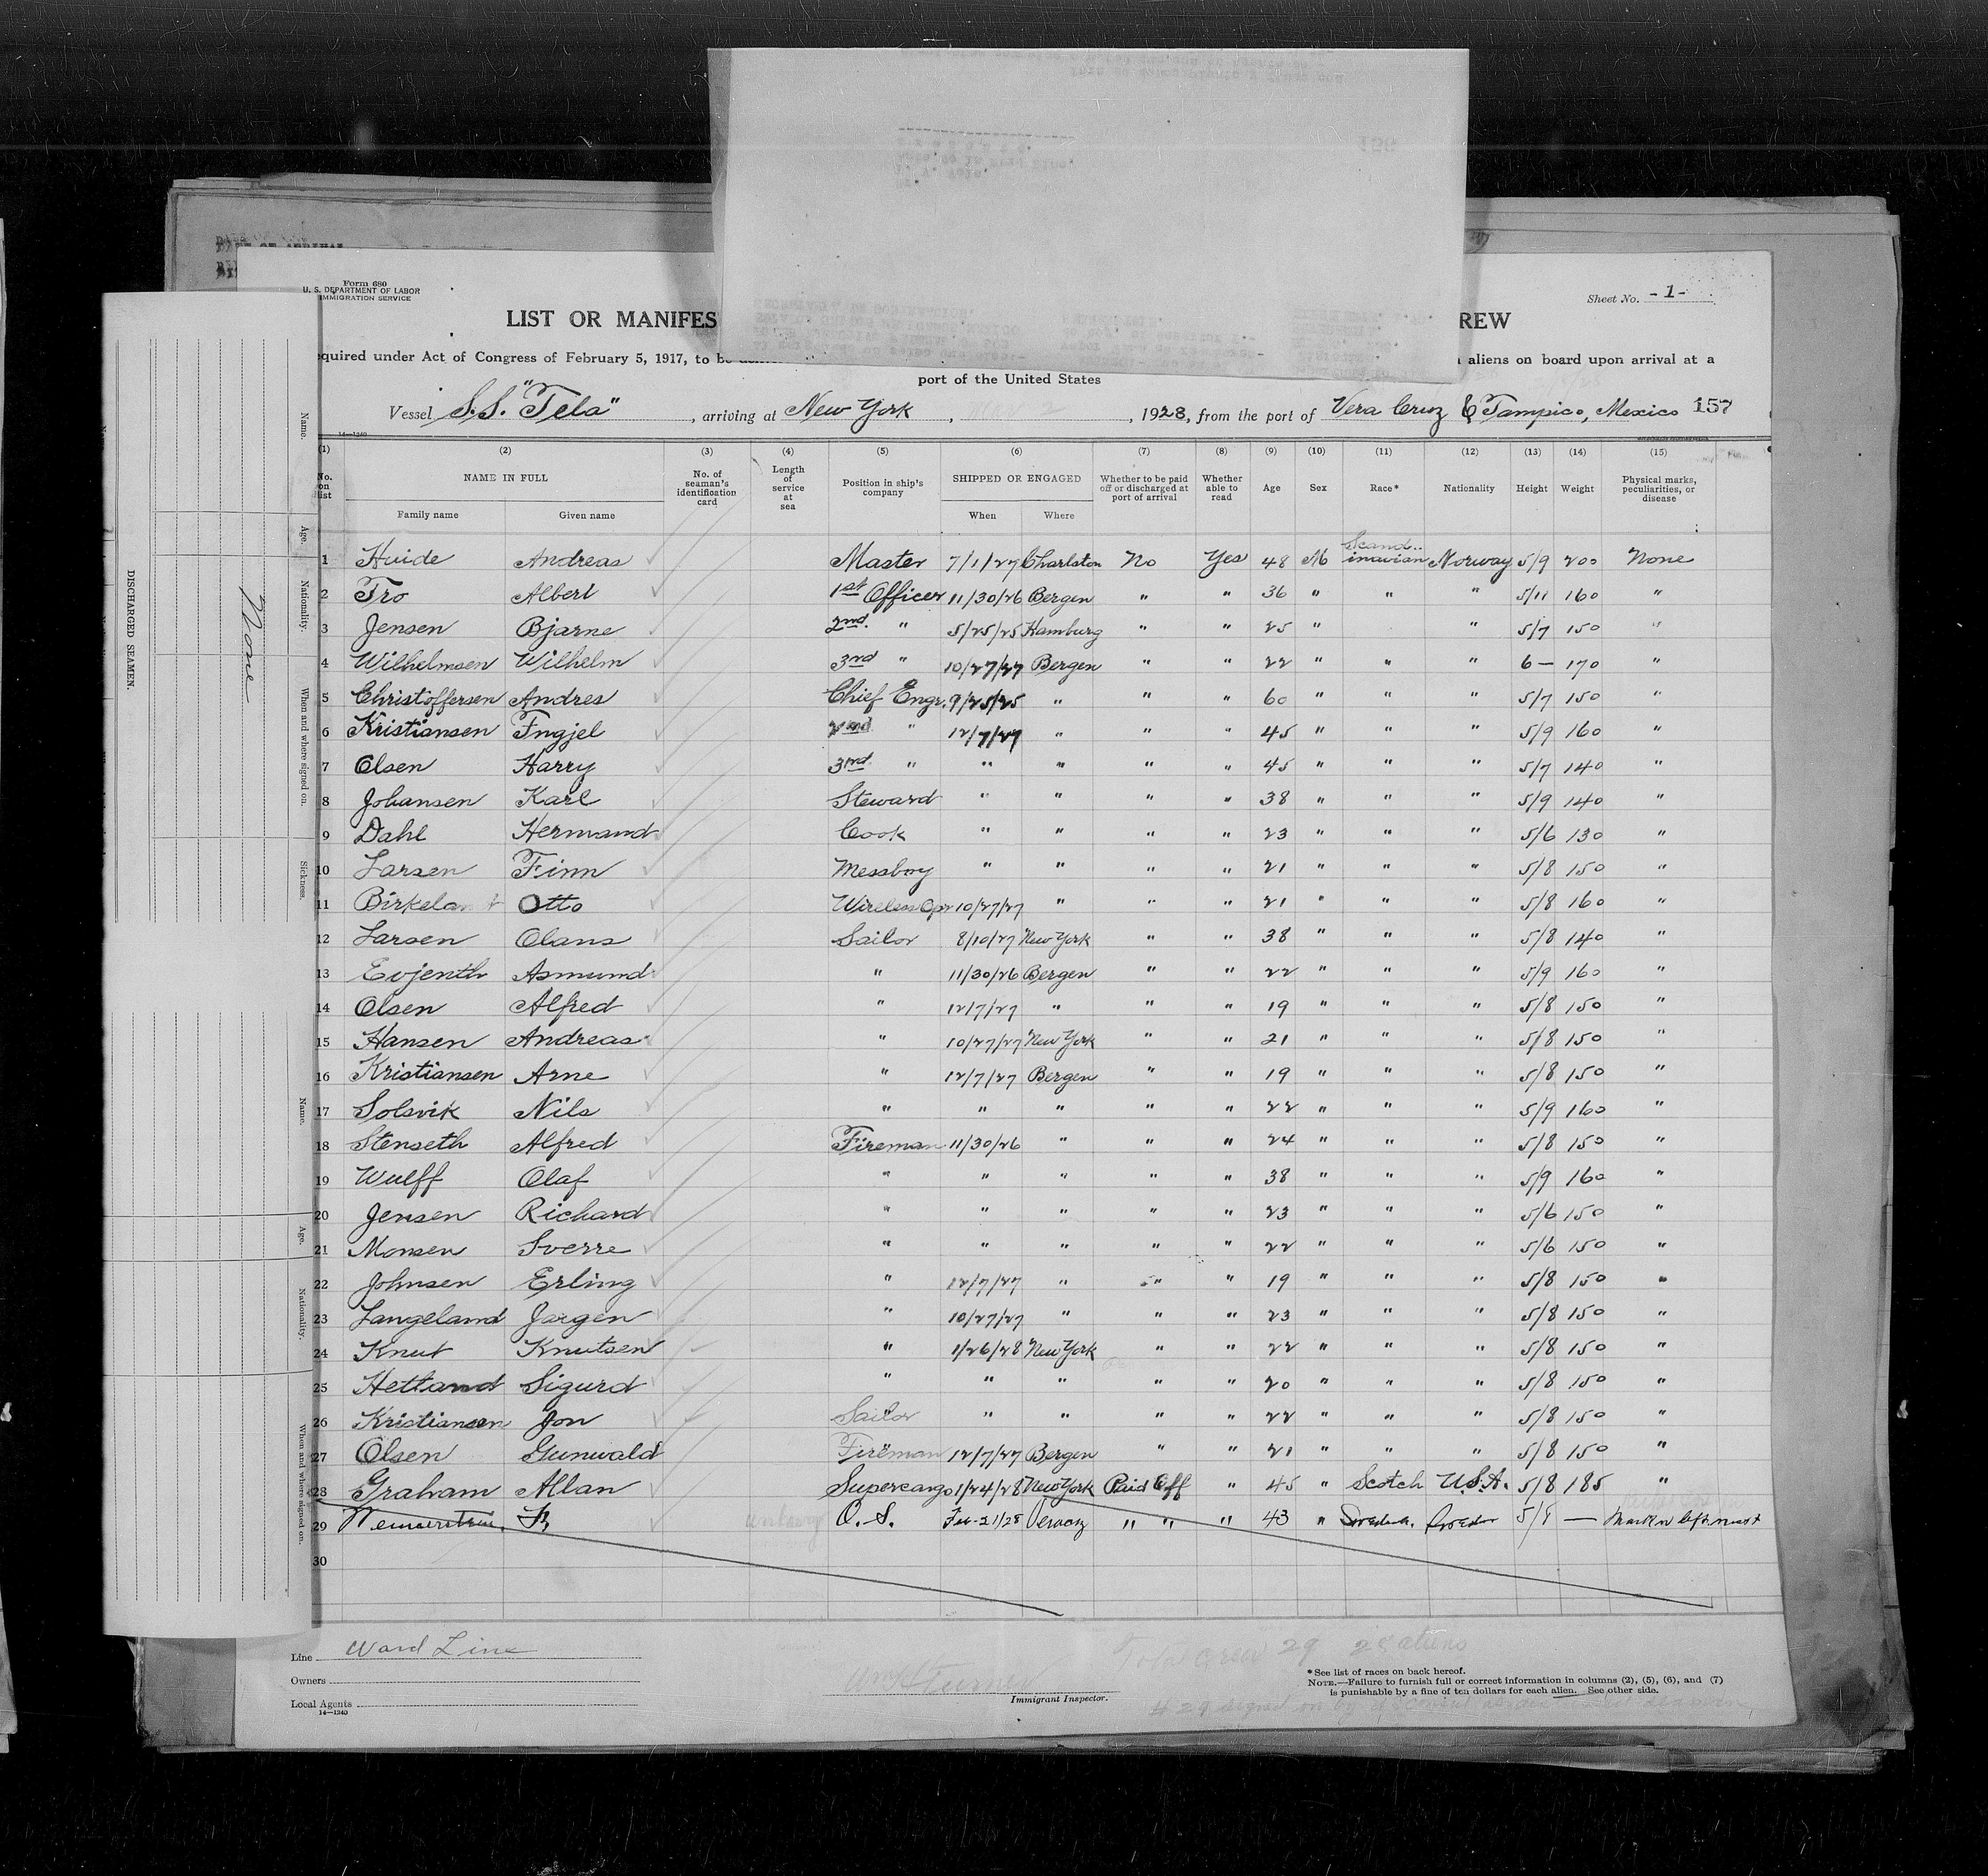 Form 680
U. S. DEPARTMENT OF LABOR
IMMIGRATION SERVICE
Sheet No. -1-
LIST OR MANIFES REW
quired under Act of Congress of February 5, 1917, to be aliens on board upon arrival at a
port of the United States
Vessel S.S. "Tela", arriving at New York, 1928, from the port of Vera Cruz & Tampico, Mexico 157
14—1240
(1) (2) (3) (4) (5) (6) (7) (8) (9) (10) (11) (12) (13) (14) (15)
No. on list NAME IN FULL Family name Given name No. of seaman's identification card Length of service at sea Position in ship's company SHIPPED OR ENGAGED When Where Whether to be paid off or discharged at port of arrival Whether able to read Age Sex Race* Nationality Height Weight Physical marks, peculiarities, or disease
1 Huide Andreas Master 7/1/27 Charlston No Yes 48 M Scandinavian Norway 5/9 200 None
2 Tro Albert 1st Officer 11/30/26 Bergen " " 36 " " " 5/11 160 "
3 Jensen Bjarne 2nd. " 5/25/25 Hamburg " " 25 " " 5/7 150 "
4 Wilhelmsen Wilhelm 3rd " 10/27/27 Bergen " " 22 " " " 6— 170 "
5 Christoffersen Andres Chief Engr. 9/25/25 " " " 60 " " " 5/7 150 "
6 Kristiansen Ingjel 2nd " 12/7/27 " " " 45 " " " 5/9 160 "
7 Olsen Harry 3rd. " " " " " 45 " " " 5/7 140 "
8 Johansen Karl Steward " " " " 38 " " " 5/9 140 "
9 Dahl Hermand Cook " " " " 23 " " " 5/6 130 "
10 Larsen Finn Messboy " " " " 21 " " " 5/8 150 "
11 Birkeland Otto Wireless Opr 10/27/27 " " " 21 " " " 5/8 160 "
12 Larsen Olans Sailor 8/10/27 New York " " 38 " " " 5/8 140 "
13 Evjenth Asmund " 11/30/26 Bergen " " 22 " " " 5/9 160 "
14 Olsen Alfred " 12/7/27 " " " 19 " " " 5/8 150 "
15 Hansen Andreas " 10/27/27 New York " " 21 " " " 5/8 150 "
16 Kristiansen Arne " 12/7/27 Bergen " " 19 " " " 5/8 150 "
17 Solsvik Nils " " " " " 22 " " " 5/9 160 "
18 Stenseth Alfred Fireman 11/30/26 " " " 24 " " " 5/8 150 "
19 Wulff Olaf " " " " " 38 " " " 5/9 160 "
20 Jensen Richard " " " " " 23 " " " 5/6 150 "
21 Monsen Sverre " " " " " 22 " " " 5/6 150 "
22 Johnsen Erling " 12/7/27 " " " 19 " " " 5/8 150 "
23 Langeland Jargen " 10/27/27 " " " 23 " " " 5/8 150 "
24 Knut Knutsen " 1/26/28 New York " " 22 " " " 5/8 150 "
25 Hetland Sigurd " " " " " 20 " " " 5/8 150 "
26 Kristiansen Jon Sailor " " " " 22 " " " 5/8 150 "
27 Olsen Gunwald Fireman 12/7/27 Bergen " " 21 " " " 5/8 150 "
28 Graham Allan Supercargo 1/24/28 New York Paid Off " 45 " Scotch U.S.A. 5/8 185 "
29 O.S. Feb-21/28 Veracruz " " " 43 " Sweden 5/8 —
30
Line Ward Line
Owners
Local Agents
14—1240
Immigrant Inspector.
Total crew 29 28 aliens
* See list of races on back hereof.
NOTE.—Failure to furnish full or correct information in columns (2), (5), (6), and (7)
is punishable by a fine of ten dollars for each alien. See other side.
#29 signed on by
DISCHARGED SEAMEN.
Name.
Age.
Nationality.
When and where signed on.
Sickness.
None
Name.
Age.
Nationality.
When and where signed on.